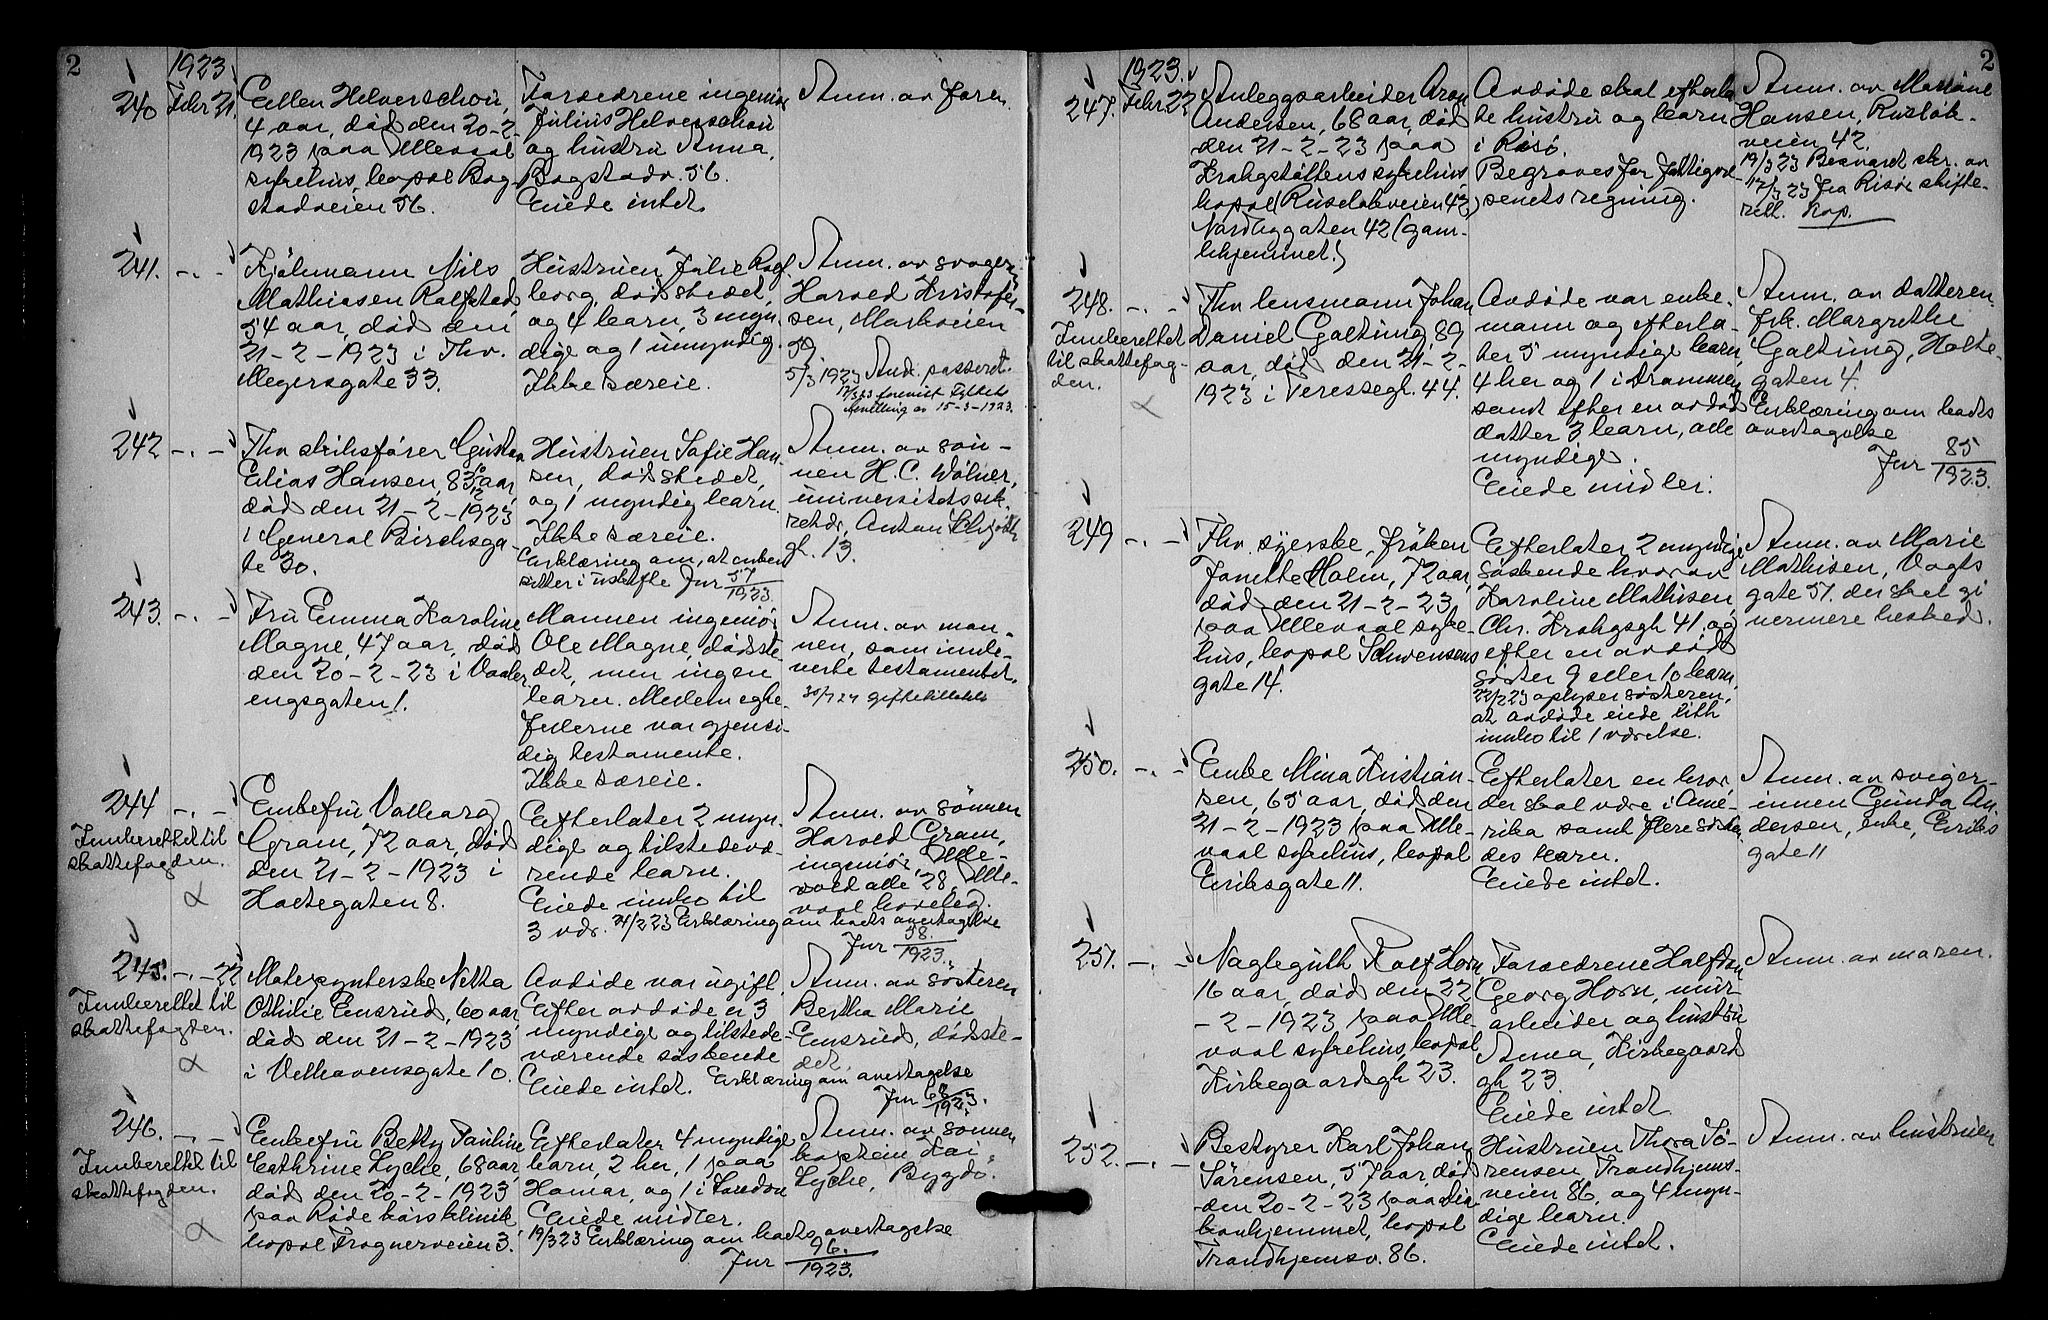 2
1923
240 Febr 21.
Ellen Helverschou,
4 aar, død den 20-2-
1923 paa Ullevaal
sykehus, bopæl Bog-
stadveien 56.
Forældrene ingeniør
Julius Helverschou
og hustru Anna,
Bogstadv. 56.
Eiede intet.
Anm. av faren.
241. -.-
Kjølmann Nils
Mathiasen Rolfstad,
54 aar, død den
21-2-1923 i Thv.
Meyersgate 33.
Hustruen Julie
borg, dødsstedet,
og 4 barn, 3 myn-
dige og 1 umyndig.
Ikke særeie.
Anm. av svogeren
Harald Kristofer-
sen, Markveien
59.
5/3 1923 And. passert.
15-3-1923.
242 -.-
Fhv skibsfører Gustav
Elias Hansen, 83 aar,
død den 21-2-1923
i General Birchsga-
te 30.
Hustruen Sofie Han-
sen, dødsstedet,
og 1 myndig barn.
Ikke særeie.
Erklæring om, at enken
sitter i uskifte Jnr 57/1923.
Anm. av søn-
nen H.C. Wølner,
universitetssek-
retær, Anton Schjøths
gt. 13.
243. -.-
Fru Emma Karoline
Magne, 47 aar, død
den 20-2-23 i Vaaler-
engsgaten 1.
Mannen ingeniør
Ole Magne, dødsste-
det, men ingen
barn. Mellem egte-
fellerne var gjensi-
dig testamente.
Ikke særeie.
Anm. av man-
nen, som inle-
verte testamentet.
244 -.-
Innberettet til
skattefogden.
Enkefru Valborg
Gram, 72 aar, død
den 21-2-1923 i
Holtegaten 8.
Efterlater 2 myn-
dige og tilstedevæ-
rende barn.
Eiede innbo til
3 vær. 24/2 23 Erklæring om boets overtagelse
Jnr 58./1923.
Anm. av sønnen
Harald Gram,
ingeniør, Ulle-
vold alle 28, Ulle-
vaal haveby.
245. -.- 22
Innberettet til
skattefogden.
Matsynterske Netta
Othilie Ensrud, 60 aar,
død den 21-2-1923
i Velhavensgate 10.
Avdøde var ugift.
Efter avdøde er 3
myndige og tilstede-
værende søskende
Eiede intet. Erklæring om overtagelse
Jnr 68/1923.
Anm. av søsteren
Bertha Marie
Ensrud, dødsste-
det.
246. -.-
Innberettet til
skattefogden.
Enkefru Betty Pauline
Cathrine Lyche, 68 aar,
død den 20-2-1923
paa Røde kors klinik,
bopæl Frognerveien 3.
Efterlater 4 myndige
barn, 2 her, 1 paa
Hamar, og 1 i London
Eiede midler.
19/3 23 Erklæring om boets overtagelse
Jnr 96./1923.
Anm. av sønnen
kaptein Kai
Lyche, Bygdø.
2
1923.
247. Febr 22
Anleggsarbeider Aron
Andersen, 68 aar, død
den 21-2-23 paa
Krohgstøttens sykehus,
bopæl (Ruseløkveien 42)
Nordbygaten 42 (gam-
lehjemmet!)
Avdøde skal efterla-
te hustru og barn
i Risør.
Begraves for fattigve-
senets regning.
Anm. av Mariane
Hansen, Ruseløk-
veien 42.
19/3 23 Besvaret skr. av
17/3 23 fra Risør skifte-
rett. Kop.
248. -.-
Innberettet
til skattefog-
den.
Fhv lensmann Johan
Daniel Galtung, 89
aar, død den 21-2-
1923 i Neressegt. 44.
Avdøde var enke-
mann og efterla-
ter 5 myndige barn,
4 her og 1 i Drammen,
samt efter en avdød
datter 3 barn, alle
myndige.
Eiede midler.
Anm. av datteren
frk. Margrethe
Galtung, Holte-
gaten 4.
Erklæring om boets
overtagelse
Jnr 85/1923.
249 -.-
Fhv. syerske, frøken
Janette Holm, 72 aar,
død den 21-2-23
paa Ullevaal syke-
hus, bopæl Schwensens
gate 14.
Efterlater 2 myndige
søskende hvorav
Karoline Mathisen,
Chr. Krohgsgt 41, og
efter en avdød
søster 9 eller 10 barn.
22/2 23 oplyser søsteren,
at avdøde eiede litt
innbo til 1 værelse.
Anm. av Marie
Mathisen, Vogts
gate 51. der skal gi
nermere besked.
250. -.-
Enke Mina Kristian-
sen, 65 aar, død den
21-2-1923 paa Ulle-
vaal sykehus, bopæl
Eriksgate 11.
Efterlater en bror,
der skal være i Ame-
rika samt flere søsken-
des barn.
Eiede intet.
Anm. av sviger-
innen Gunda An-
dersen, enke, Eriks
gate 11
251. -.-
Naglegutt Rolf Horn
16 aar, død den 22
-2-1923 paa Ulle-
vaal sykehus, bopæl
Kirkegaardsgt 23.
Forældrene Halfdan
Georg Horn, mur-
arbeider og hustru
Anna, Kirkegaards
gt 23.
Eiede intet
Anm. av moren.
252. -.-
Bestyrer Karl Johan
Sørensen, 57 aar, død
den 20-2-23 paa Dia-
konhjemmet, bopæl
Trondhjemsv. 86.
Hustruen Thora Sø-
rensen, Trondhjems-
veien 86, og 4 myn-
dige barn.
Eiede intet.
Anm. av hustruen